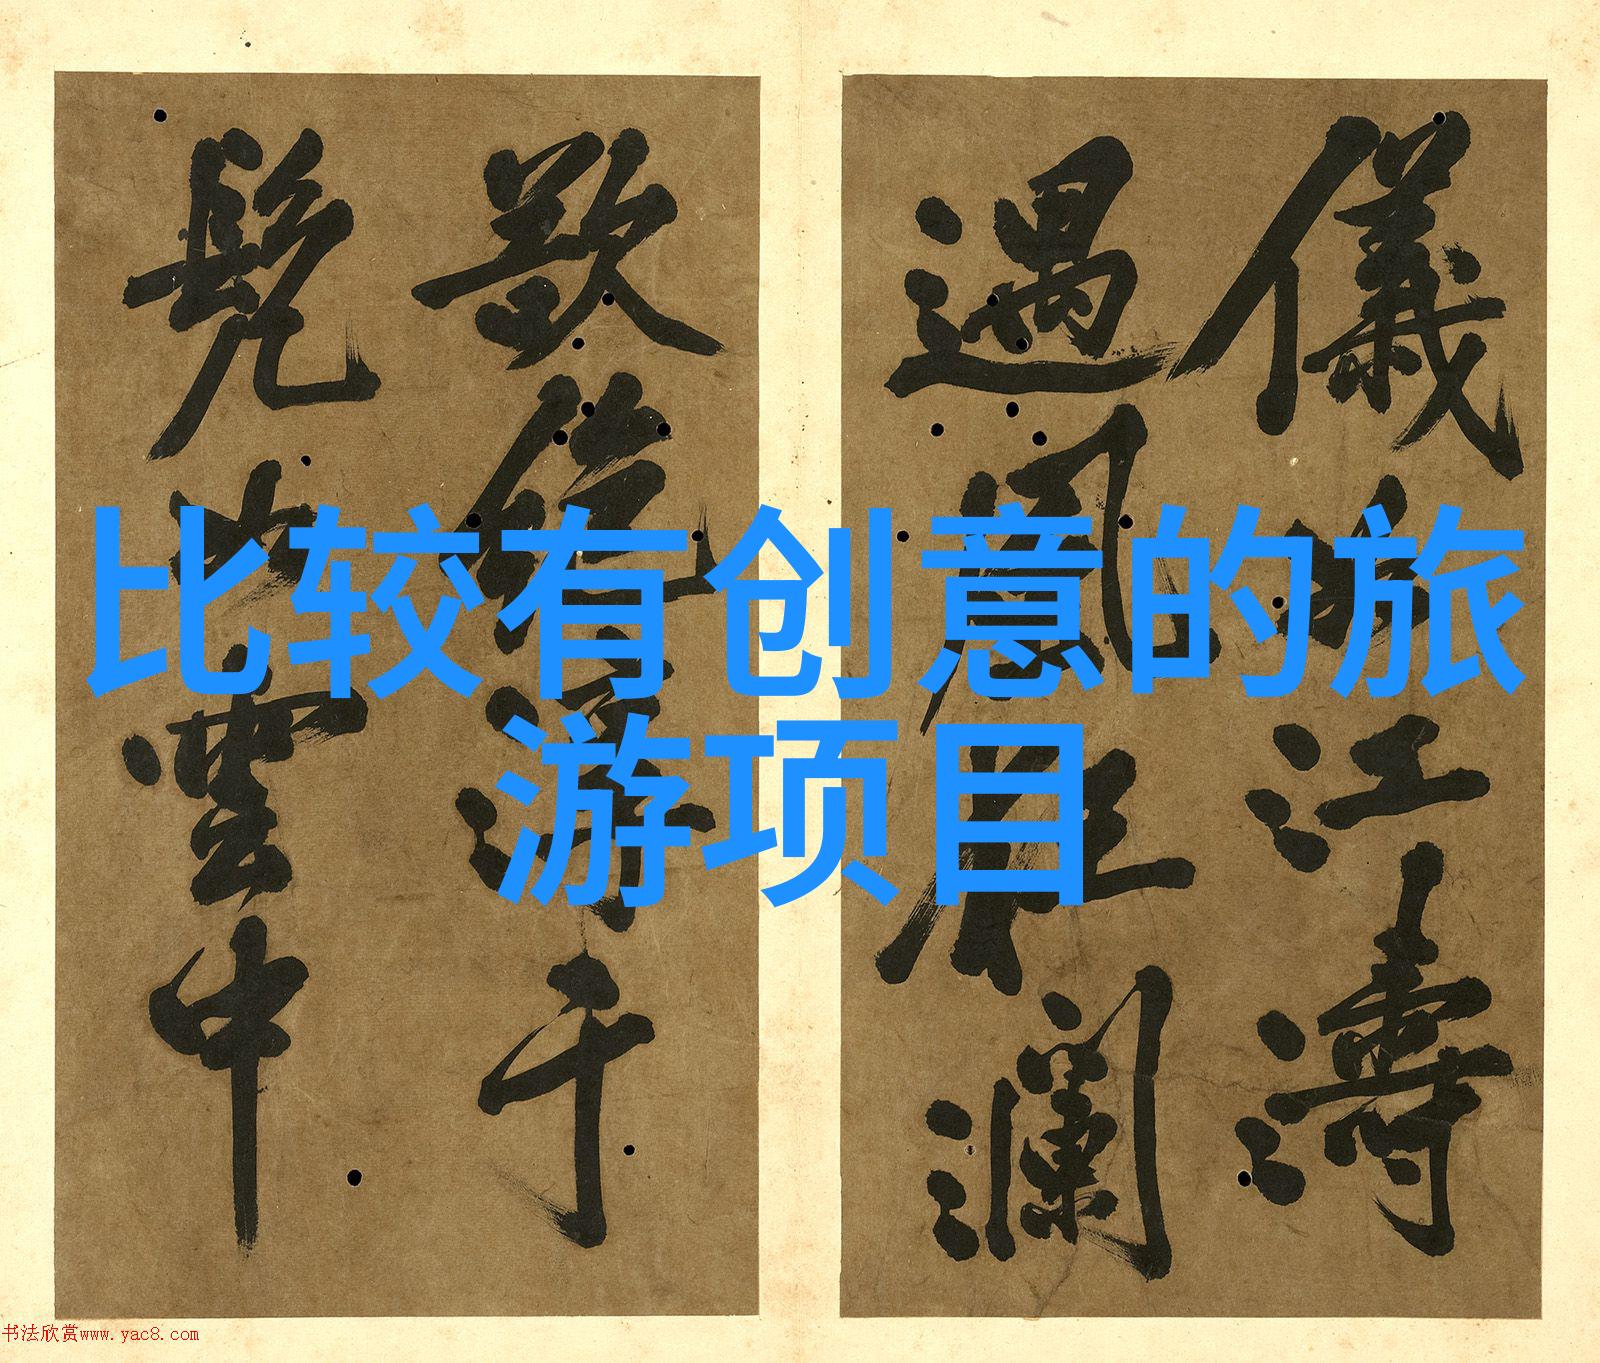 比较有创意的旅
游项目
儀如江濤
遇風瀾
于
如雲中
书法欣赏www.yac8.com